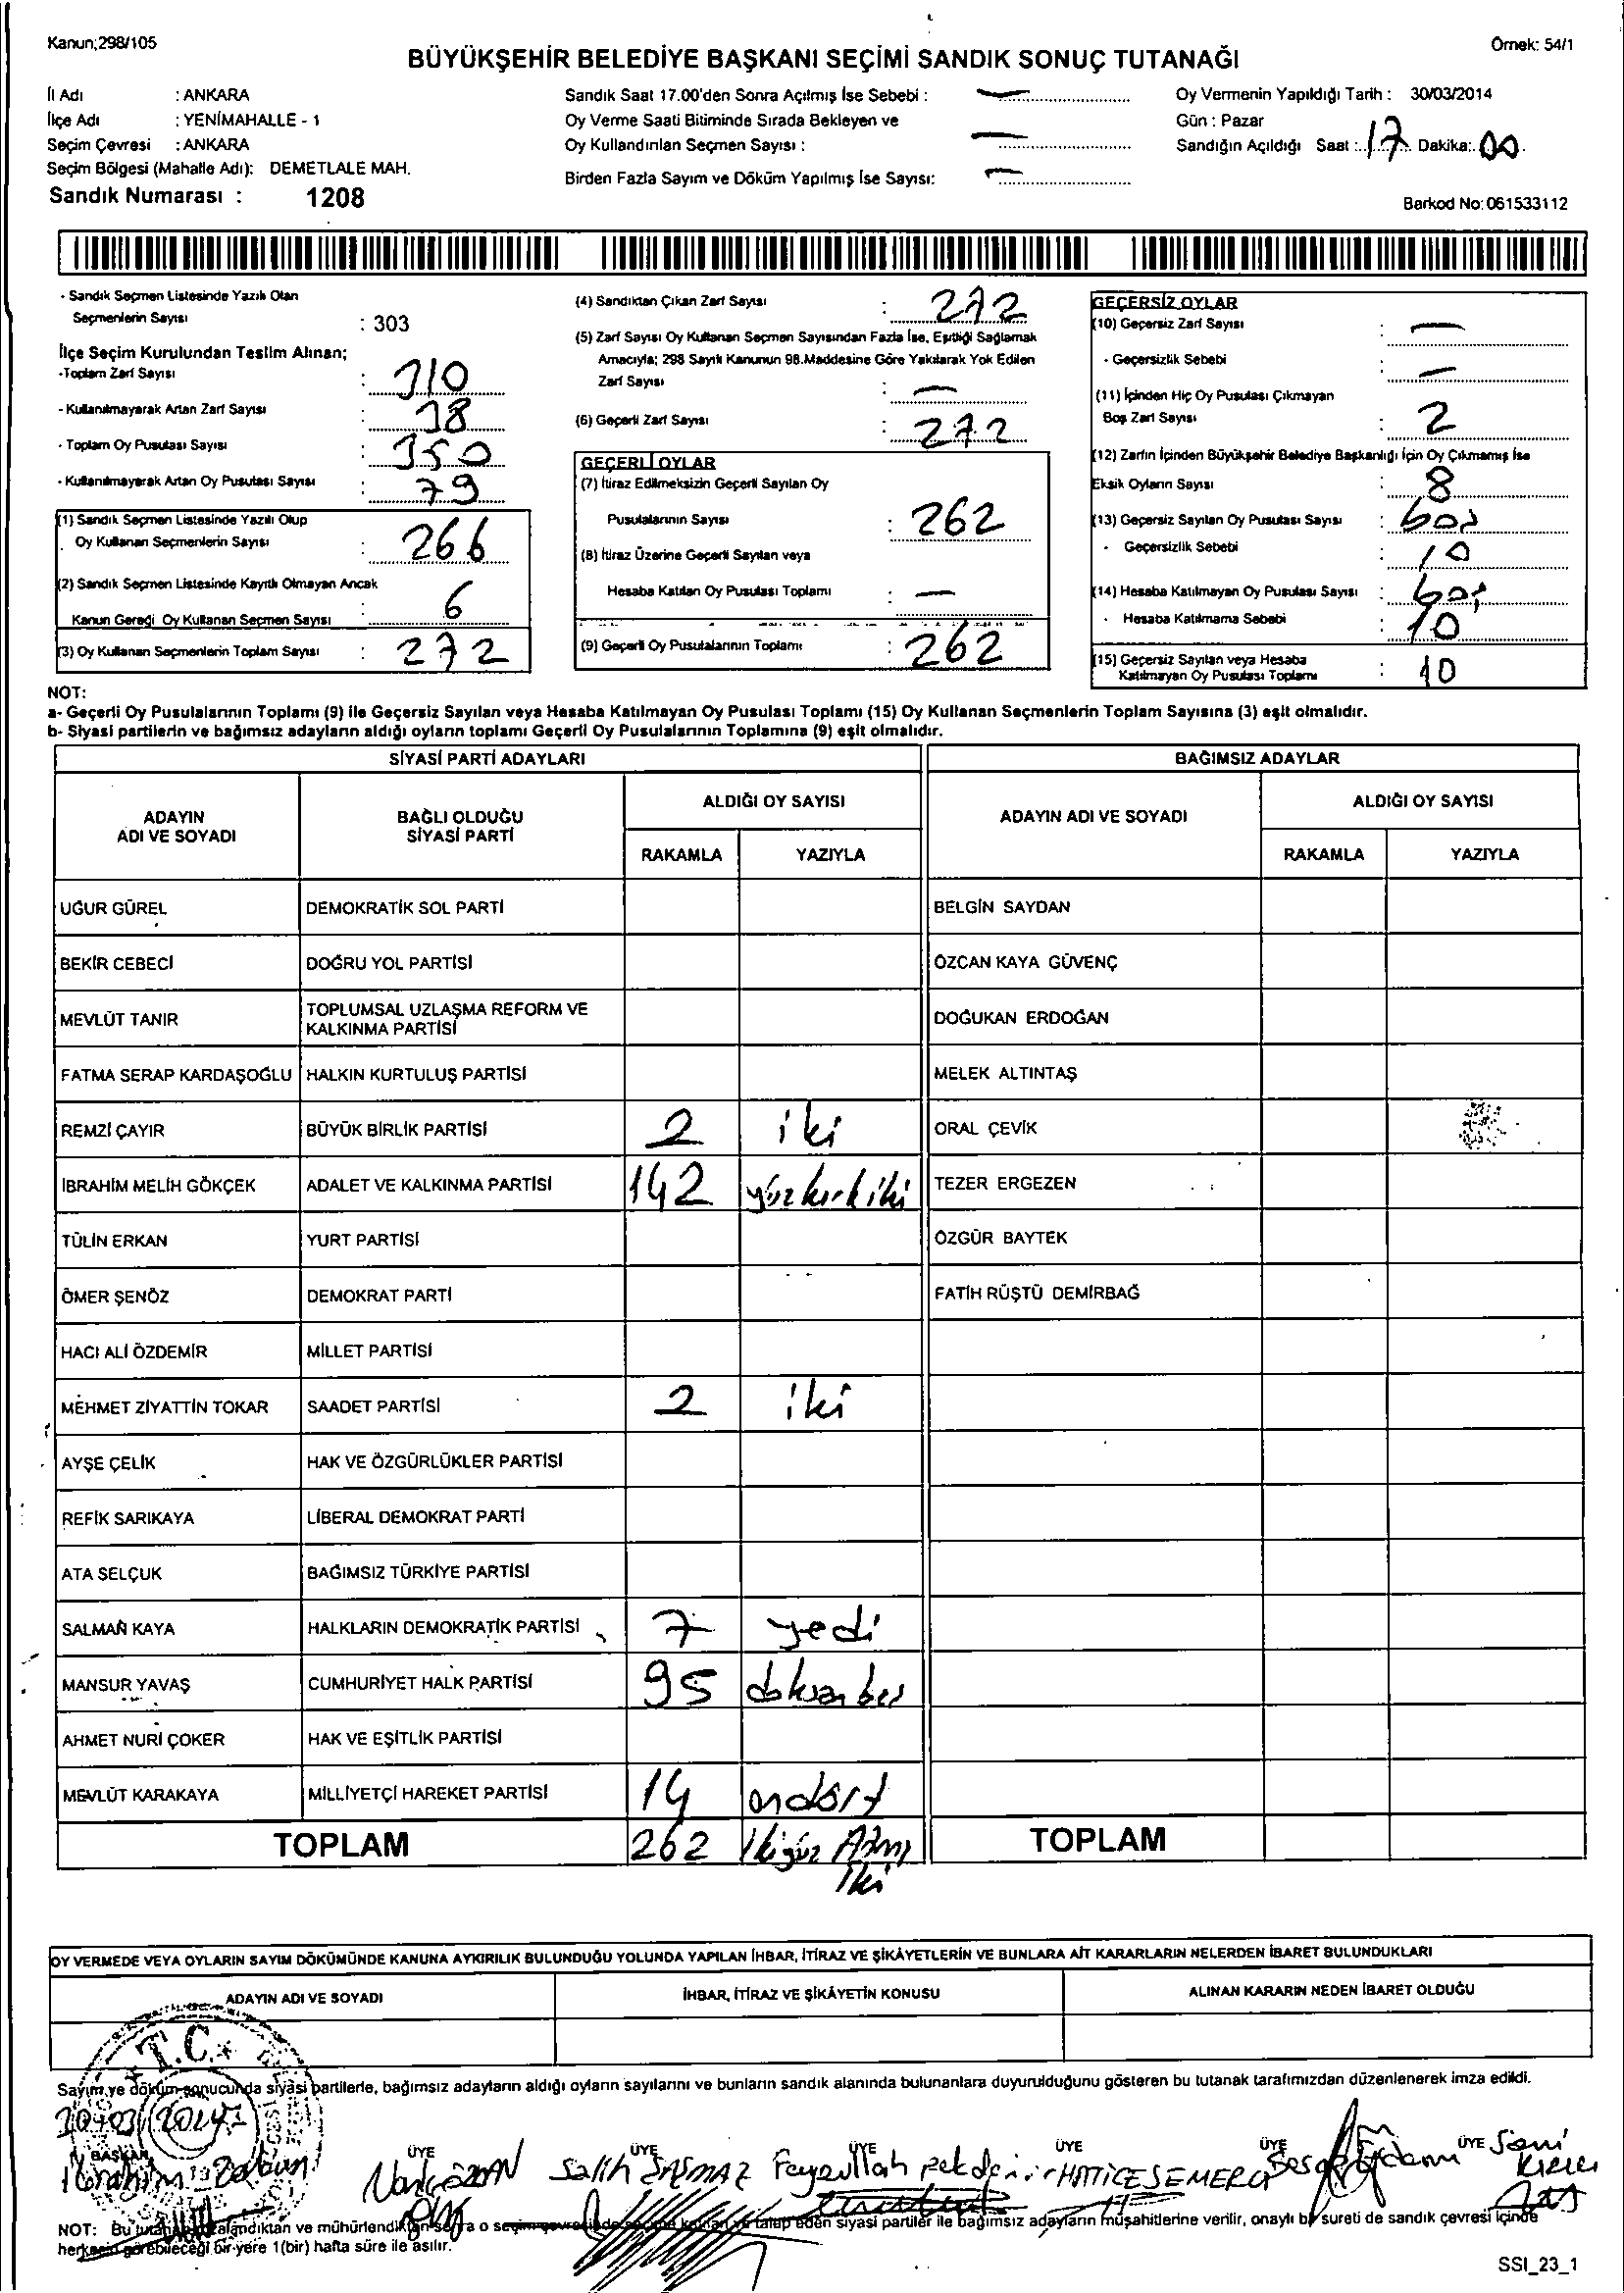 Kanun;298/105
Örnek: 54/1
BÜYÜKŞEHİR BELEDİYE BAŞKANI SEÇİMİ SANDIK SONUÇ TUTANAĞI
İl Adı : ANKARA
İlçe Adı : YENİMAHALLE - 1
Seçim Çevresi : ANKARA
Seçim Bölgesi (Mahalle Adı): DEMETLALE MAH.
Sandık Numarası : 1208
Sandık Saat 17.00'den Sonra Açılmış İse Sebebi : —
Oy Verme Saati Bitiminde Sırada Bekleyen ve
Oy Kullandırılan Seçmen Sayısı : —
Birden Fazla Sayım ve Döküm Yapılmış İse Sayısı: —
Oy Vermenin Yapıldığı Tarih : 30/03/2014
Gün : Pazar
Sandığın Açıldığı Saat : 17 Dakika: 00
Barkod No: 061533112
- Sandık Seçmen Listesinde Yazılı Olan
Seçmenlerin Sayısı : 303
İlçe Seçim Kurulundan Teslim Alınan;
-Toplam Zarf Sayısı : 310
- Kullanılmayarak Artan Zarf Sayısı : 38
- Toplam Oy Pusulası Sayısı : 350
- Kullanılmayarak Artan Oy Pusulası Sayısı : 79
(1) Sandık Seçmen Listesinde Yazılı Olup
Oy Kullanan Seçmenlerin Sayısı : 266
(2) Sandık Seçmen Listesinde Kayıtlı Olmayan Ancak
Kanun Gereği Oy Kullanan Seçmen Sayısı : 6
(3) Oy Kullanan Seçmenlerin Toplam Sayısı : 272
(4) Sandıktan Çıkan Zarf Sayısı : 272
(5) Zarf Sayısı Oy Kullanan Seçmen Sayısından Fazla İse, Eşitliği Sağlamak
Amacıyla; 298 Sayılı Kanunun 98.Maddesine Göre Yakılarak Yok Edilen
Zarf Sayısı : —
(6) Geçerli Zarf Sayısı : 272
GEÇERLİ OYLAR
(7) İtiraz Edilmeksizin Geçerli Sayılan Oy
Pusulalarının Sayısı : 262
(8) İtiraz Üzerine Geçerli Sayılan veya
Hesaba Katılan Oy Pusulası Toplamı : —
(9) Geçerli Oy Pusulalarının Toplamı : 262
GEÇERSİZ OYLAR
(10) Geçersiz Zarf Sayısı : —
- Geçersizlik Sebebi : —
(11) İçinden Hiç Oy Pusulası Çıkmayan
Boş Zarf Sayısı : 2
(12) Zarfın İçinden Büyükşehir Belediye Başkanlığı İçin Oy Çıkmamış İse
Eksik Oyların Sayısı : 8
(13) Geçersiz Sayılan Oy Pusulası Sayısı :
- Geçersizlik Sebebi : 10
(14) Hesaba Katılmayan Oy Pusulası Sayısı :
- Hesaba Katılmama Sebebi : 10
(15) Geçersiz Sayılan veya Hesaba
Katılmayan Oy Pusulası Toplamı : 10
NOT:
a- Geçerli Oy Pusulalarının Toplamı (9) ile Geçersiz Sayılan veya Hesaba Katılmayan Oy Pusulası Toplamı (15) Oy Kullanan Seçmenlerin Toplam Sayısına (3) eşit olmalıdır.
b- Siyasi partilerin ve bağımsız adayların aldığı oyların toplamı Geçerli Oy Pusulalarının Toplamına (9) eşit olmalıdır.
SİYASİ PARTİ ADAYLARI BAĞIMSIZ ADAYLAR
ADAYIN ADI VE SOYADI BAĞLI OLDUĞU SİYASİ PARTİ ALDIĞI OY SAYISI ADAYIN ADI VE SOYADI ALDIĞI OY SAYISI
RAKAMLA YAZIYLA RAKAMLA YAZIYLA
UĞUR GÜREL DEMOKRATİK SOL PARTİ BELGİN SAYDAN
BEKİR CEBECİ DOĞRU YOL PARTİSİ ÖZCAN KAYA GÜVENÇ
MEVLÜT TANIR TOPLUMSAL UZLAŞMA REFORM VE KALKINMA PARTİSİ DOĞUKAN ERDOĞAN
FATMA SERAP KARDAŞOĞLU HALKIN KURTULUŞ PARTİSİ MELEK ALTINTAŞ
REMZİ ÇAYIR BÜYÜK BİRLİK PARTİSİ 2 iki ORAL ÇEVİK
İBRAHİM MELİH GÖKÇEK ADALET VE KALKINMA PARTİSİ 142 yüzkırkiki TEZER ERGEZEN
TÜLİN ERKAN YURT PARTİSİ ÖZGÜR BAYTEK
ÖMER ŞENÖZ DEMOKRAT PARTİ FATİH RÜŞTÜ DEMİRBAĞ
HACI ALİ ÖZDEMİR MİLLET PARTİSİ
MEHMET ZİYATTİN TOKAR SAADET PARTİSİ 2 iki
AYŞE ÇELİK HAK VE ÖZGÜRLÜKLER PARTİSİ
REFİK SARIKAYA LİBERAL DEMOKRAT PARTİ
ATA SELÇUK BAĞIMSIZ TÜRKİYE PARTİSİ
SALMAN KAYA HALKLARIN DEMOKRATİK PARTİSİ 7 yedi
MANSUR YAVAŞ CUMHURİYET HALK PARTİSİ 95 doksanbeş
AHMET NURİ ÇOKER HAK VE EŞİTLİK PARTİSİ
MEVLÜT KARAKAYA MİLLİYETÇİ HAREKET PARTİSİ 14 ondört
TOPLAM 262 İkiyüz Atmış TOPLAM
iki
OY VERMEDE VEYA OYLARIN SAYIM DÖKÜMÜNDE KANUNA AYKIRILIK BULUNDUĞU YOLUNDA YAPILAN İHBAR, İTİRAZ VE ŞİKÂYETLERİN VE BUNLARA AİT KARARLARIN NELERDEN İBARET BULUNDUKLARI
ADAYIN ADI VE SOYADI İHBAR, İTİRAZ VE ŞİKÂYETİN KONUSU ALINAN KARARIN NEDEN İBARET OLDUĞU
T.C.
Sayım ve döküm sonucunda siyasi partilerle, bağımsız adayların aldığı oyların sayılarını ve bunların sandık alanında bulunanlara duyurulduğunu gösteren bu tutanak tarafımızdan düzenlenerek imza edildi.
BAŞKAN ÜYE ÜYE ÜYE ÜYE ÜYE ÜYE
İbrahim Salih ŞAŞMAZ Feyzullah HATİCE SEMERCİ
NOT: Bu tutanak imzalandıktan ve mühürlendikten sonra o seçim çevresinde seçime katılan ve talep eden siyasi partiler ile bağımsız adayların müşahitlerine verilir, onaylı bir sureti de sandık çevresi içinde
herkesin görebileceği bir yere 1(bir) hafta süre ile asılır.
SSI_23_1